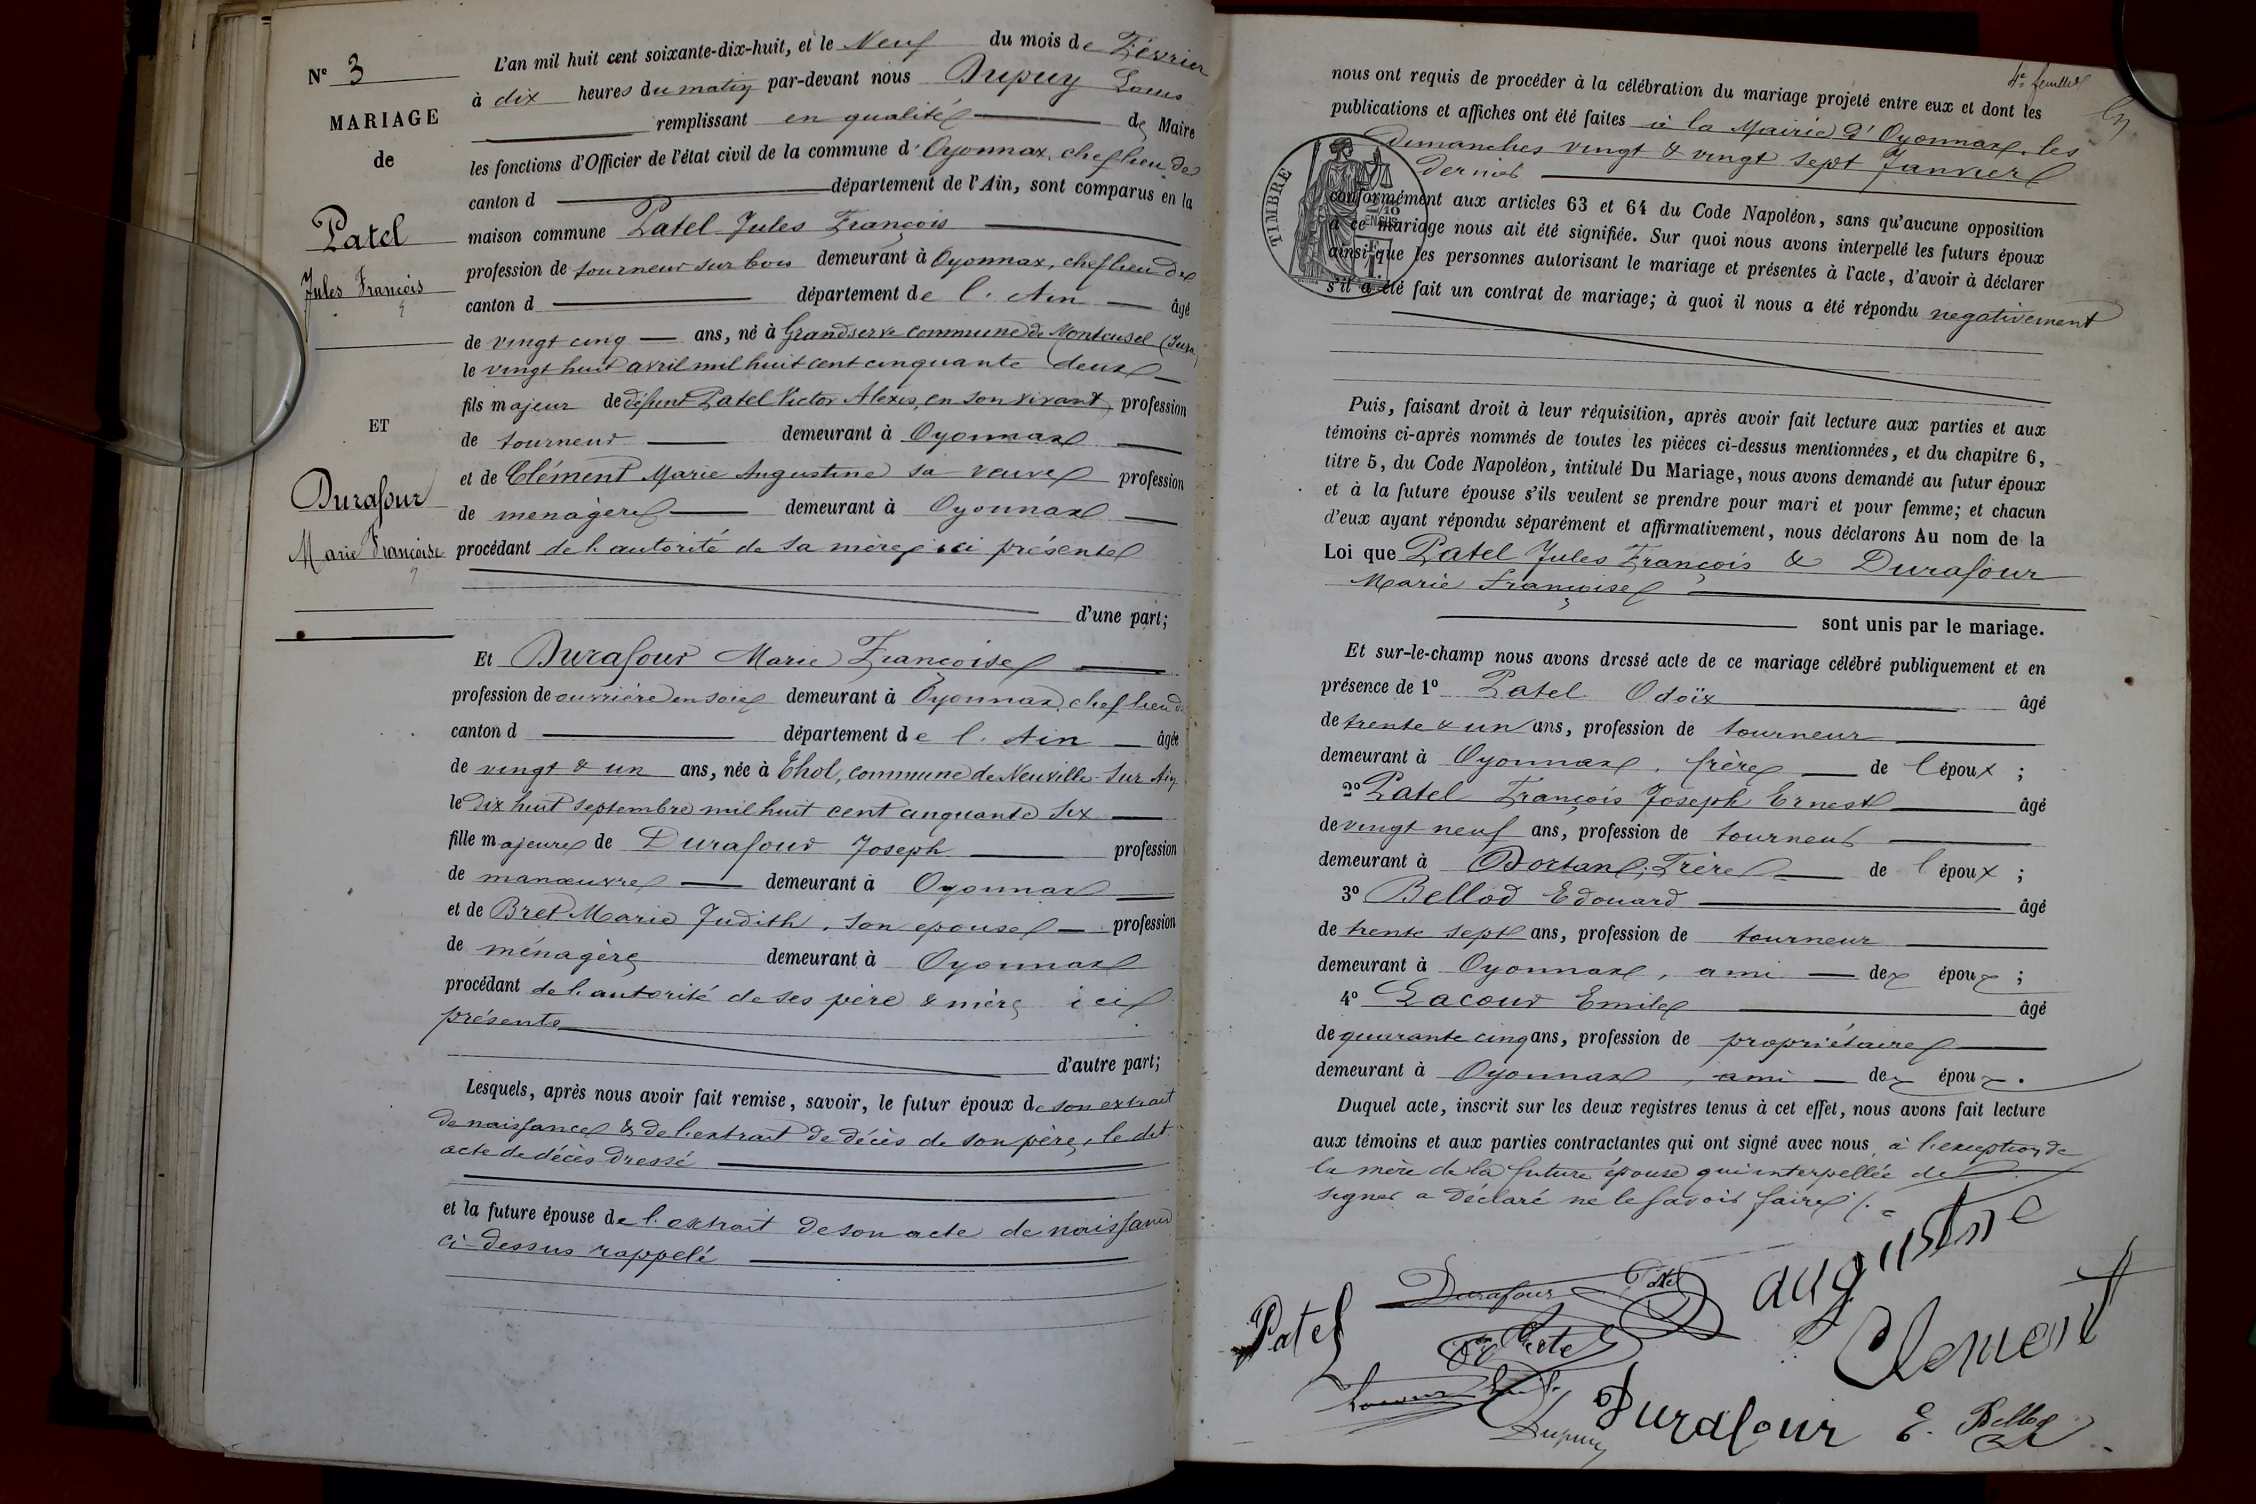 N° 3
MARIAGE
de
Patel
Jules François
ET
Durafour
Marie Françoise
L'an mil huit cent soixante-dix-huit, et le Neuf du mois de Février
à dix heures du matin par-devant nous Dupuy Louis
remplissant en qualité de Maire
les fonctions d'Officier de l'état civil de la commune d'Oyonnax, chef lieu de
canton d département de l'Ain, sont comparus en la
maison commune Patel Jules François
profession de tourneur sur bois demeurant à Oyonnax, chef lieu de
canton d département de l'Ain âgé
de vingt cinq ans, né à Grandserve commune de Montcusel (Jura)
le vingt huit avril mil huit cent cinquante deux
fils majeur de défunt Patel Victor Alexis, en son vivant, profession
de tourneur demeurant à Oyonnax
et de Clément Marie Augustine sa veuve profession
de menagère demeurant à Oyonnax
procédant de l'autorité de sa mère ici présente
d'une part;
Et Durafour Marie Françoise
profession de ouvrière en soie demeurant à Oyonnax, chef lieu de
canton d département de l'Ain âgée
de vingt & un ans, née à Thol, commune de Neuville-sur-Ain
le dix huit septembre mil huit cent cinquante six
fille majeure de Durafour Joseph profession
de manœuvre demeurant à Oyonnax
et de Bret Marie Judith, son epouse profession
de ménagère demeurant à Oyonnax
procédant de l'autorité de ses père & mère ici
présents
d'autre part;
Lesquels, après nous avoir fait remise, savoir, le futur époux de son extrait
de naissance & de l'extrait de décès de son père, le dit
acte de décès dressé
et la future épouse de l'extrait de son acte de naissance
ci-dessus rappelé
4e feuillet
nous ont requis de procéder à la célébration du mariage projeté entre eux et dont les
publications et affiches ont été faites à la Mairie d'Oyonnax, les
dimanches vingt & vingt sept Janvier
dernier
TIMBRE
conformément aux articles 63 et 64 du Code Napoléon, sans qu'aucune opposition
à ce mariage nous ait été signifiée. Sur quoi nous avons interpellé les futurs époux
ainsi que les personnes autorisant le mariage et présentes à l'acte, d'avoir à déclarer
s'il a été fait un contrat de mariage; à quoi il nous a été répondu negativement
Puis, faisant droit à leur réquisition, après avoir fait lecture aux parties et aux
témoins ci-après nommés de toutes les pièces ci-dessus mentionnées, et du chapitre 6,
titre 5, du Code Napoléon, intitulé Du Mariage, nous avons demandé au futur époux
et à la future épouse s'ils veulent se prendre pour mari et pour femme; et chacun
d'eux ayant répondu séparément et affirmativement, nous déclarons Au nom de la
Loi que Patel Jules François & Durafour
Marie Françoise
sont unis par le mariage.
Et sur-le-champ nous avons dressé acte de ce mariage célébré publiquement et en
présence de 1° Patel Odoïx âgé
de trente & un ans, profession de tourneur
demeurant à Oyonnax, frère de l'époux;
2° Patel François Joseph Ernest âgé
de vingt neuf ans, profession de tourneur
demeurant à Dortan, Frère de l'époux;
3° Bellod Edouard âgé
de trente sept ans, profession de tourneur
demeurant à Oyonnax, ami des époux;
4° Lacour Emile âgé
de quarante cinq ans, profession de propriétaire
demeurant à Oyonnax, ami des époux.
Duquel acte, inscrit sur les deux registres tenus à cet effet, nous avons fait lecture
aux témoins et aux parties contractantes qui ont signé avec nous, à l'exception de
la mère de la future épouse qui interpellée de
signer a déclaré ne le savoir faire /.
augustine
Clement
Patel
Durafour
Patel
Patel
Dupuy
Durafour
E. Bellod